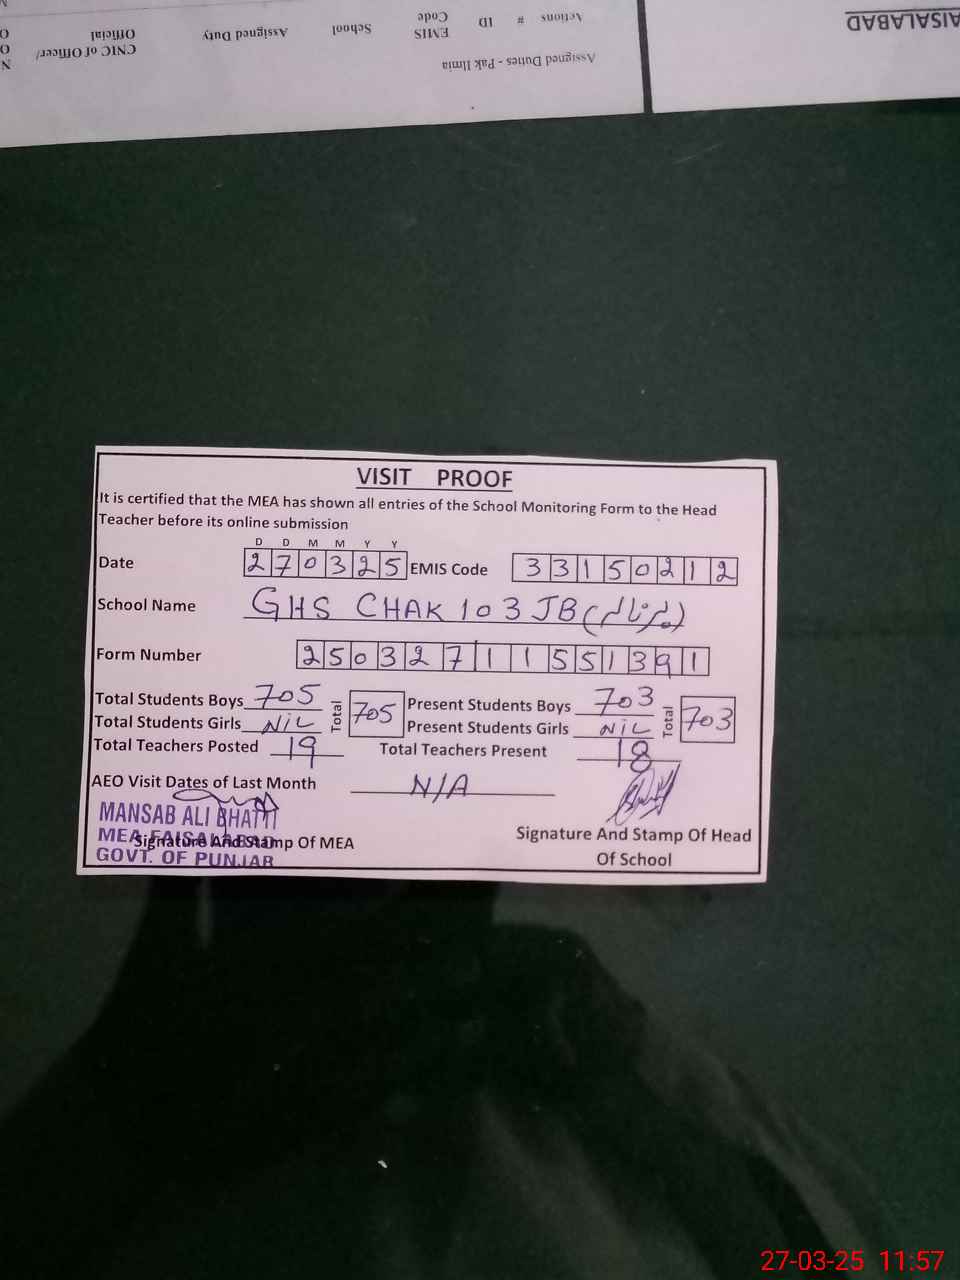 AISALABAD
Assigned Duties - Pak Ilmia
Actions # ID EMIS Code School Assigned Duty CNIC of Officer/ Official
VISIT PROOF
It is certified that the MEA has shown all entries of the School Monitoring Form to the Head
Teacher before its online submission
D D M M Y Y
Date 270325 EMIS Code 33150212
School Name GHS CHAK 103 JB (
Form Number 25032711551391
Total Students Boys 705 Total 705 Present Students Boys 703 Total 703
Total Students Girls NiL Present Students Girls NiL
Total Teachers Posted 19 Total Teachers Present 18
AEO Visit Dates of Last Month N/A
MANSAB ALI BHATTI
MEA FAISALABAD
GOVT. OF PUNJAB
Signature And Stamp Of MEA
Signature And Stamp Of Head
Of School
27-03-25 11:57